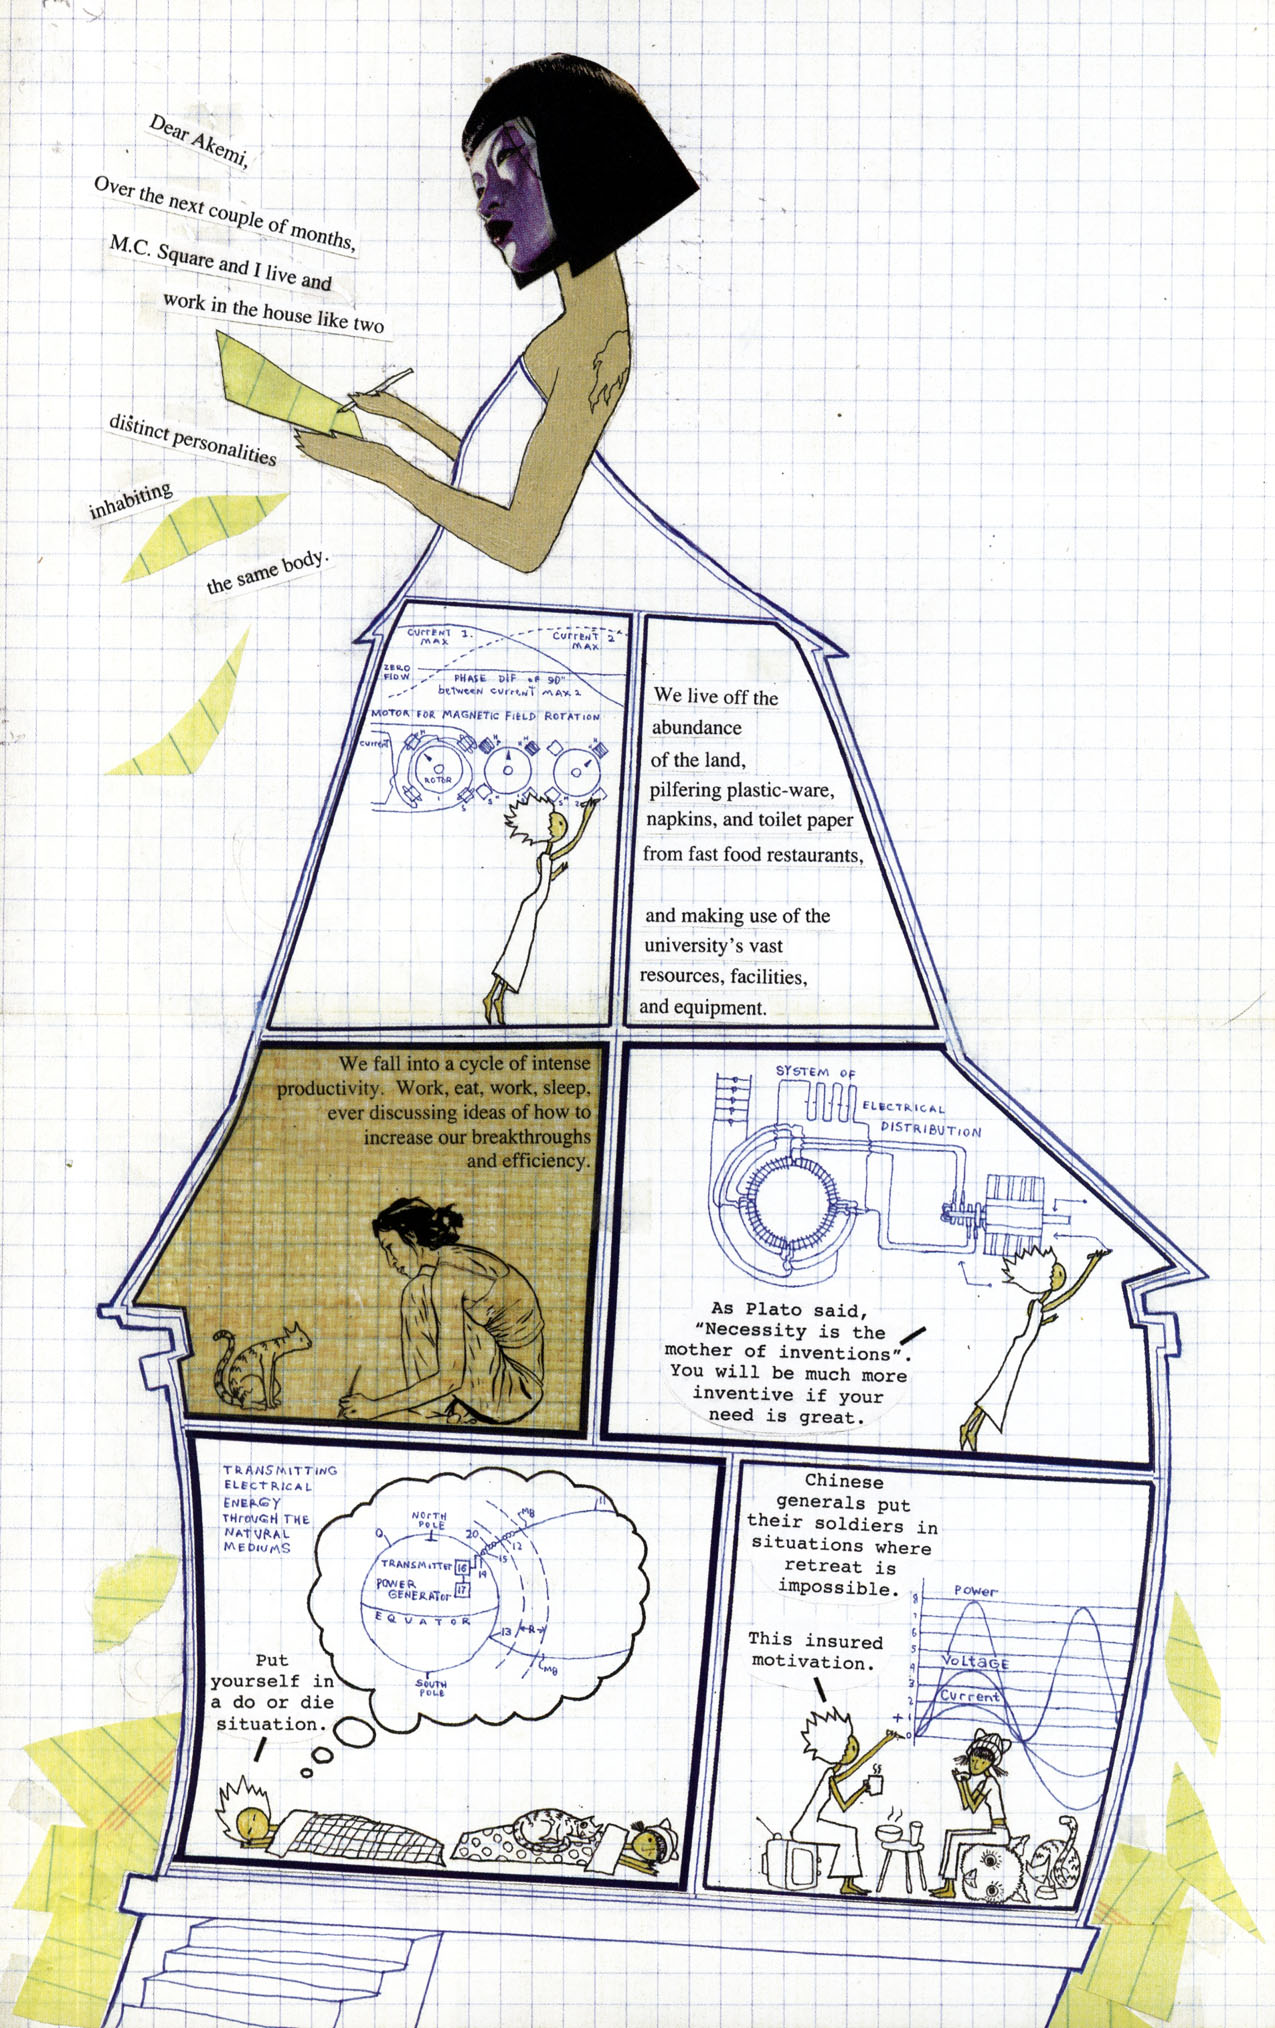 Dear Akemi,
Over the next couple of months,
M.C. Square and I live and
work in the house like two
distinct personalities
inhabiting
the same body.
CURRENT 1.
MAX
CURRENT 2
MAX
ZERO
FLOW
PHASE DIF OF 90°
between current MAX 2
MOTOR FOR MAGNETIC FIELD ROTATION
current
ROTOR
We live off the
abundance
of the land,
pilfering plastic-ware,
napkins, and toilet paper
from fast food restaurants,
and making use of the
university's vast
resources, facilities,
and equipment.
We fall into a cycle of intense
productivity. Work, eat, work, sleep,
ever discussing ideas of how to
increase our breakthroughs
and efficiency.
SYSTEM OF
ELECTRICAL
DISTRIBUTION
As Plato said,
"Necessity is the
mother of inventions".
You will be much more
inventive if your
need is great.
TRANSMITTING
ELECTRICAL
ENERGY
THROUGH THE
NATURAL
MEDIUMS
NORTH
POLE
Q
20
MB
11
12
15
TRANSMITTER 16
14
POWER
GENERATOR 17
EQUATOR
13
R
MB
SOUTH
POLE
Put
yourself in
a do or die
situation.
Chinese
generals put
their soldiers in
situations where
retreat is
impossible.
This insured
motivation.
Power
8
7
6
5
4
3
2
+ 1
0
Voltage
Current